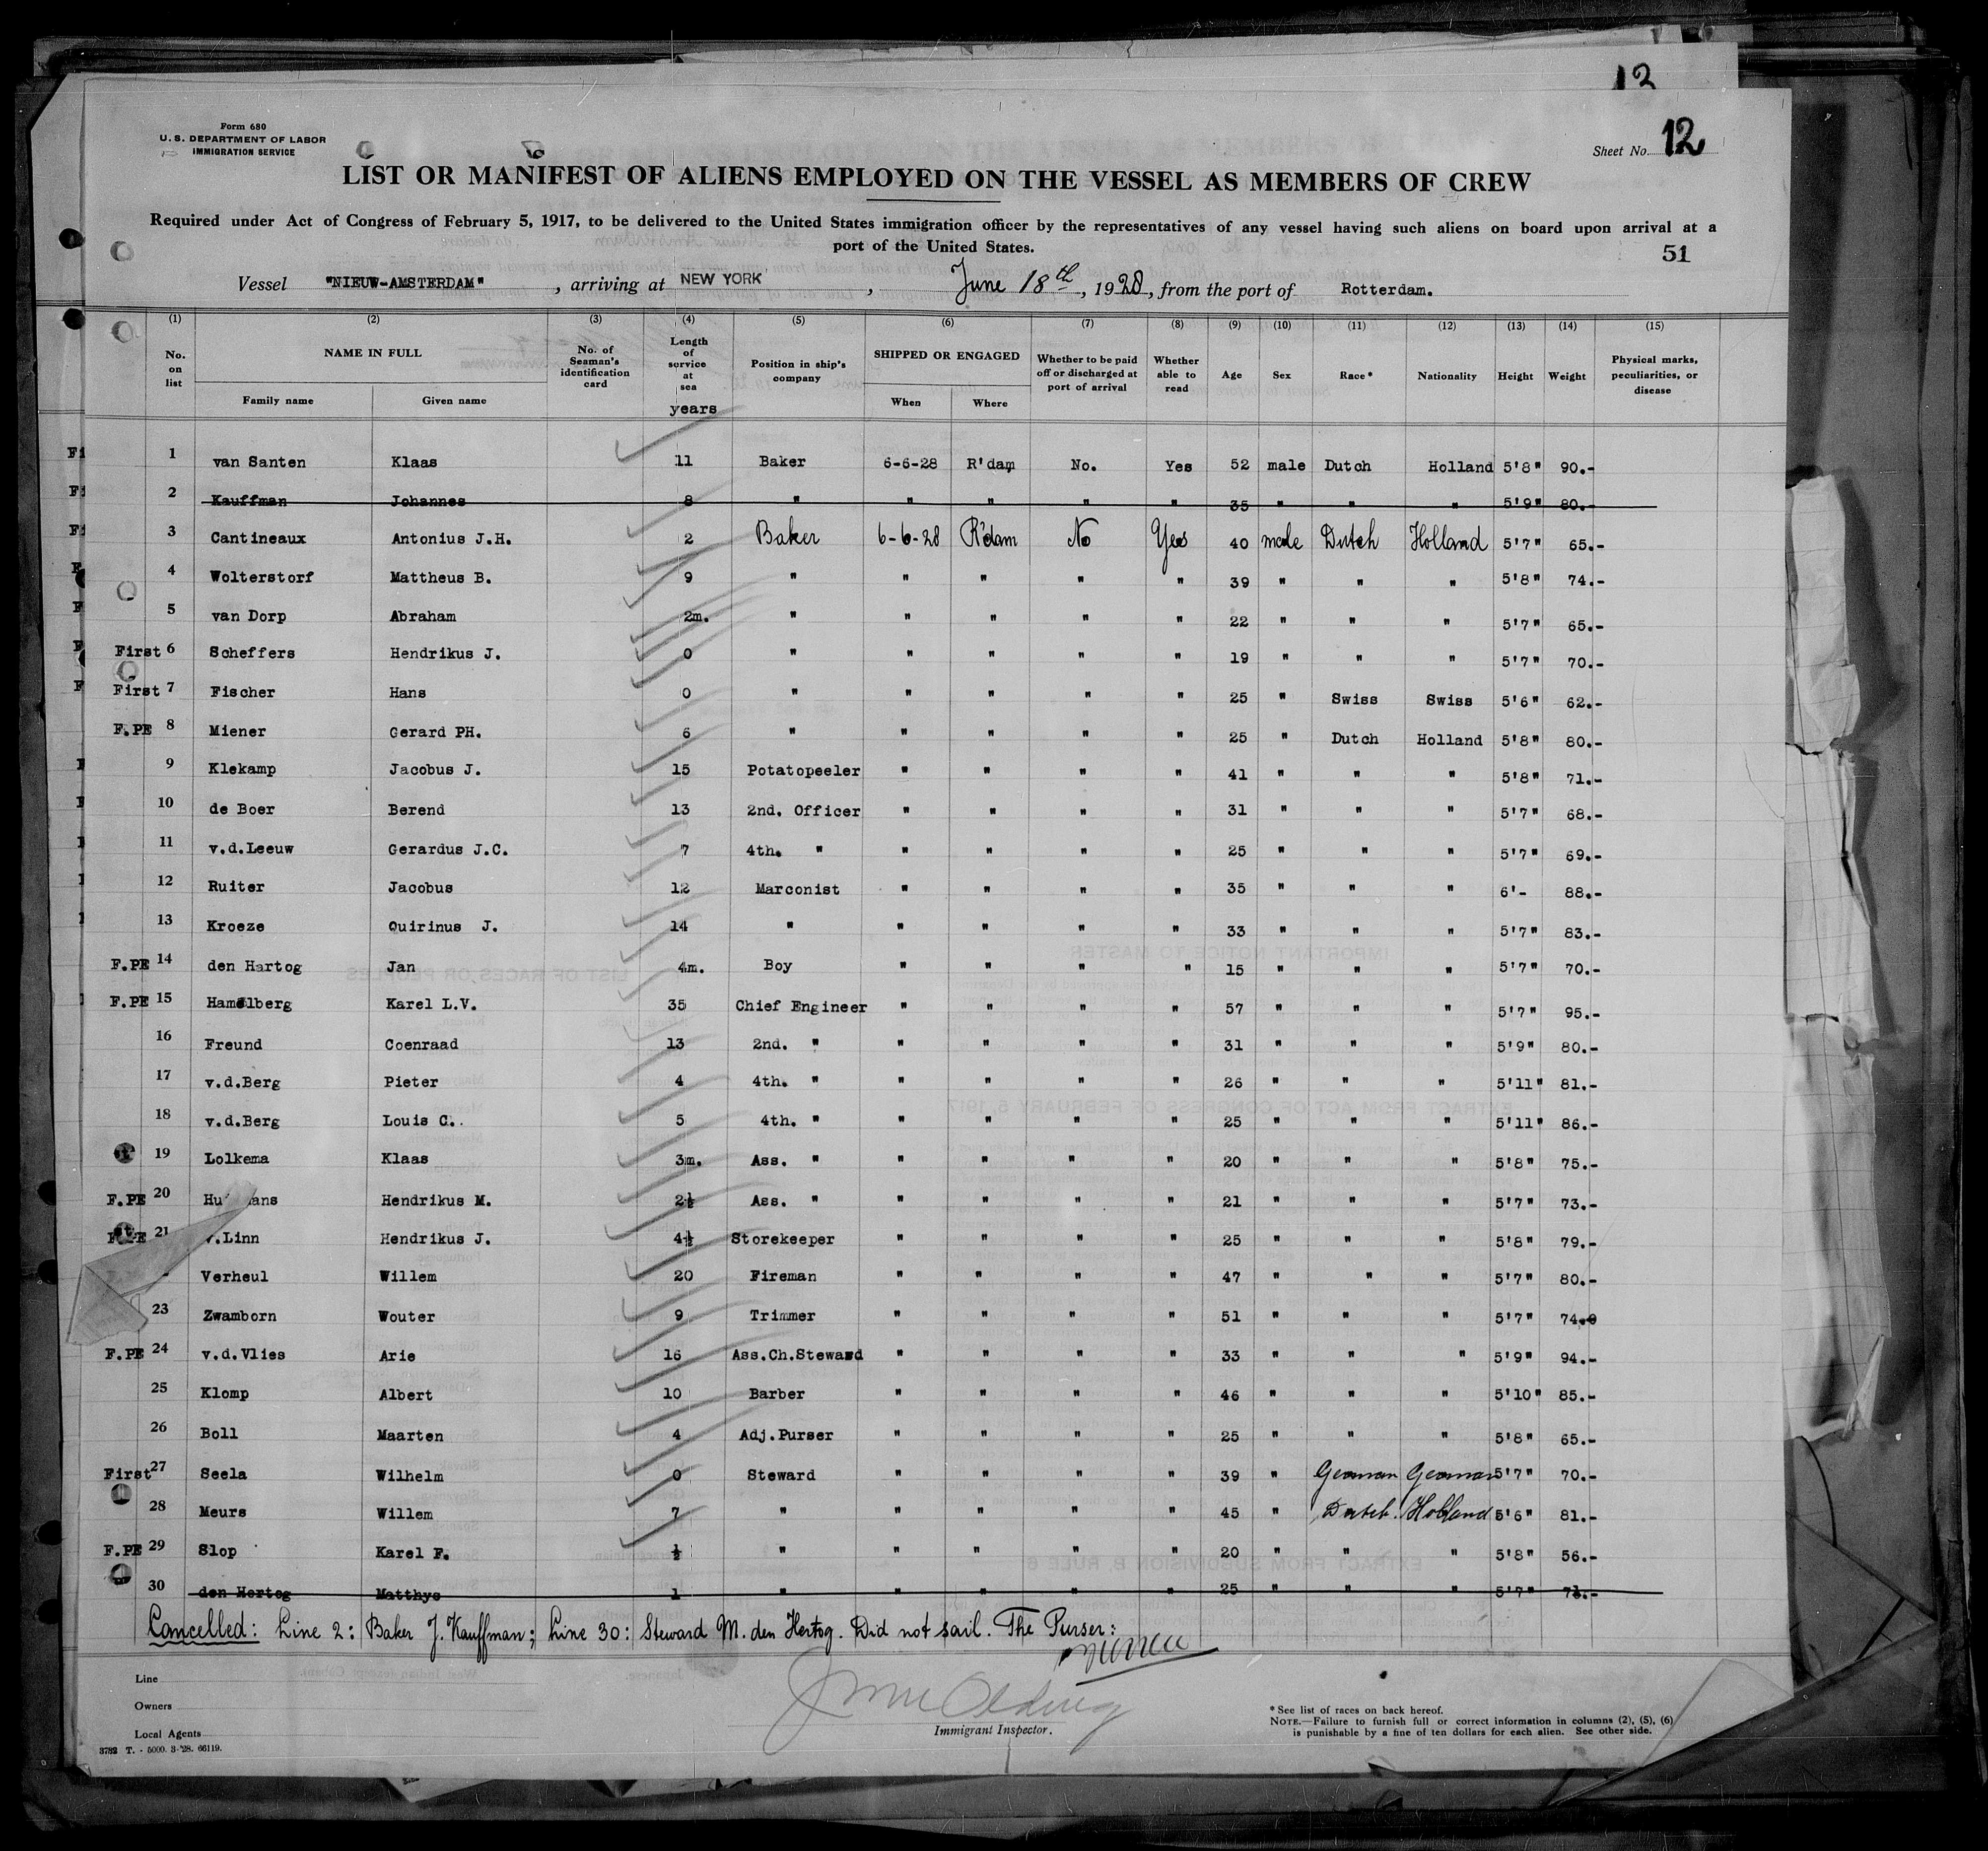 12
Form 680
U. S. DEPARTMENT OF LABOR
IMMIGRATION SERVICE
Sheet No. 12
LIST OR MANIFEST OF ALIENS EMPLOYED ON THE VESSEL AS MEMBERS OF CREW
Required under Act of Congress of February 5, 1917, to be delivered to the United States immigration officer by the representatives of any vessel having such aliens on board upon arrival at a
port of the United States.
51
Vessel "NIEUW-AMSTERDAM", arriving at NEW YORK, June 18th, 1928, from the port of Rotterdam.
(1) (2) (3) (4) (5) (6) (7) (8) (9) (10) (11) (12) (13) (14) (15)
No. on list NAME IN FULL Family name Given name No. of Seaman's identification card Length of service at sea years Position in ship's company SHIPPED OR ENGAGED When Where Whether to be paid off or discharged at port of arrival Whether able to read Age Sex Race* Nationality Height Weight Physical marks, peculiarities, or disease
1 van Santen Klaas 11 Baker 6-6-28 R'dam No. Yes 52 male Dutch Holland 5'8" 90.-
2 Kauffman Johannes 8 " " " " " 35 " " " 5'9" 80.-
3 Cantineaux Antonius J.H. 2 Baker 6-6-28 R'dam No Yes 40 male Dutch Holland 5'7" 65.-
4 Wolterstorf Mattheus B. 9 " " " " " 39 " " " 5'8" 74.-
5 van Dorp Abraham 2m. " " " " " 22 " " " 5'7" 65.-
First 6 Scheffers Hendrikus J. 0 " " " " " 19 " " " 5'7" 70.-
First 7 Fischer Hans 0 " " " " " 25 " Swiss Swiss 5'6" 62.-
F.PE 8 Miener Gerard PH. 6 " " " " " 25 " Dutch Holland 5'8" 80.-
9 Klekamp Jacobus J. 15 Potatopeeler " " " " 41 " " " 5'8" 71.-
10 de Boer Berend 13 2nd. Officer " " " " 31 " " " 5'7" 68.-
11 v.d.Leeuw Gerardus J.C. 7 4th. " " " " " 25 " " " 5'7" 69.-
12 Ruiter Jacobus 12 Marconist " " " " 35 " " " 6'- 88.-
13 Kroeze Quirinus J. 14 " " " " " 33 " " " 5'7" 83.-
F.PE 14 den Hartog Jan 4m. Boy " " " " 15 " " " 5'7" 70.-
F.PE 15 Hamelberg Karel L.V. 35 Chief Engineer " " " " 57 " " " 5'7" 95.-
16 Freund Coenraad 13 2nd. " " " " " 31 " " " 5'9" 80.-
17 v.d.Berg Pieter 4 4th. " " " " " 26 " " " 5'11" 81.-
18 v.d.Berg Louis C. 5 4th. " " " " " 25 " " " 5'11" 86.-
19 Lolkema Klaas 3m. Ass. " " " " " 20 " " " 5'8" 75.-
F.PE 20 Hendrikus M. 2½ Ass. " " " " " 21 " " " 5'7" 73.-
21 v.Linn Hendrikus J. 4½ Storekeeper " " " " 25 " " " 5'8" 79.-
Verheul Willem 20 Fireman " " " " 47 " " " 5'7" 80.-
23 Zwamborn Wouter 9 Trimmer " " " " 51 " " " 5'7" 74.-
F.PE 24 v.d.Vlies Arie 16 Ass.Ch.Steward " " " " 33 " " " 5'9" 94.-
25 Klomp Albert 10 Barber " " " " 46 " " " 5'10" 85.-
26 Boll Maarten 4 Adj.Purser " " " " 25 " " " 5'8" 65.-
First 27 Seela Wilhelm 0 Steward " " " " 39 " German German 5'7" 70.-
28 Meurs Willem 7 " " " " " 45 " Dutch Holland 5'6" 81.-
F.PE 29 Slop Karel F. ½ " " " " " 20 " " " 5'8" 56.-
30 den Hertog Matthys 1 " " " " " 25 " " " 5'7"
Cancelled: Line 2: Baker J. Kauffman; Line 30: Steward M. den Hertog. Did not sail. The Purser:
Line
Owners
Local Agents
3782 T. - 5000. 3-'28. 66119.
Immigrant Inspector.
*See list of races on back hereof.
NOTE.—Failure to furnish full or correct information in columns (2), (5), (6)
is punishable by a fine of ten dollars for each alien. See other side.